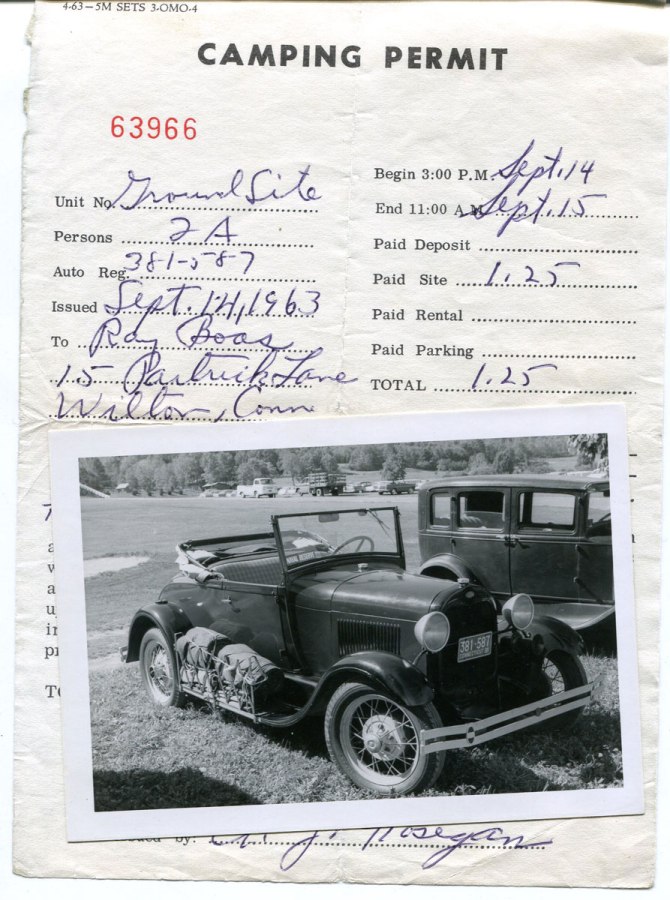 4-63—5M SETS 3-OMO-4
CAMPING PERMIT
63966
Unit No. Ground Site
Persons 2 A
Auto Reg. 381-587
Issued Sept. 14, 1963
To Ray Boas
15 Partrick Lane
Wilton, Conn
Begin 3:00 P.M. Sept. 14
End 11:00 A.M. Sept. 15
Paid Deposit
Paid Site 1.25
Paid Rental
Paid Parking
TOTAL 1.25
381·587